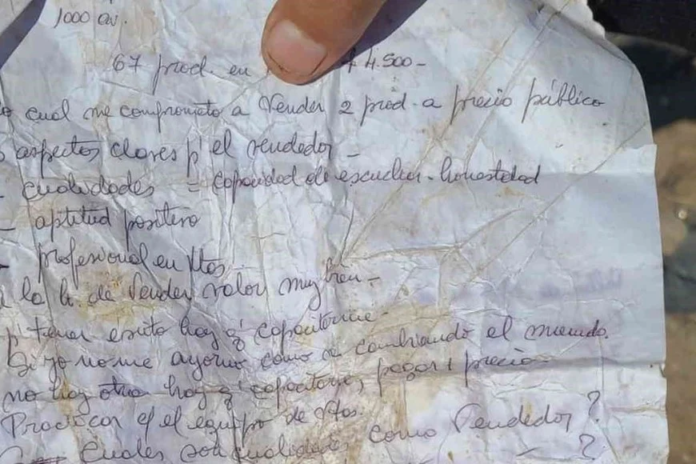 1000 av.
67 prod. en 4.500-
lo cual me comprometo a vender 2 prod. a precio público
aspectos claves p' el vendedor -
- cualidades = capacidad de escuchar - honestidad
- aptitud positiva
- profesional en Vtas
a la h. de vender valor muy bien -
p' tener exito hay q' capacitarse -
Si yo no me ayorno como va cambiando el mundo.
no hay otra hay q' capacitarse, pagar 1 precio
Practicar c/ el equipo de Vtas.
Cuales son cualidades como vendedor?